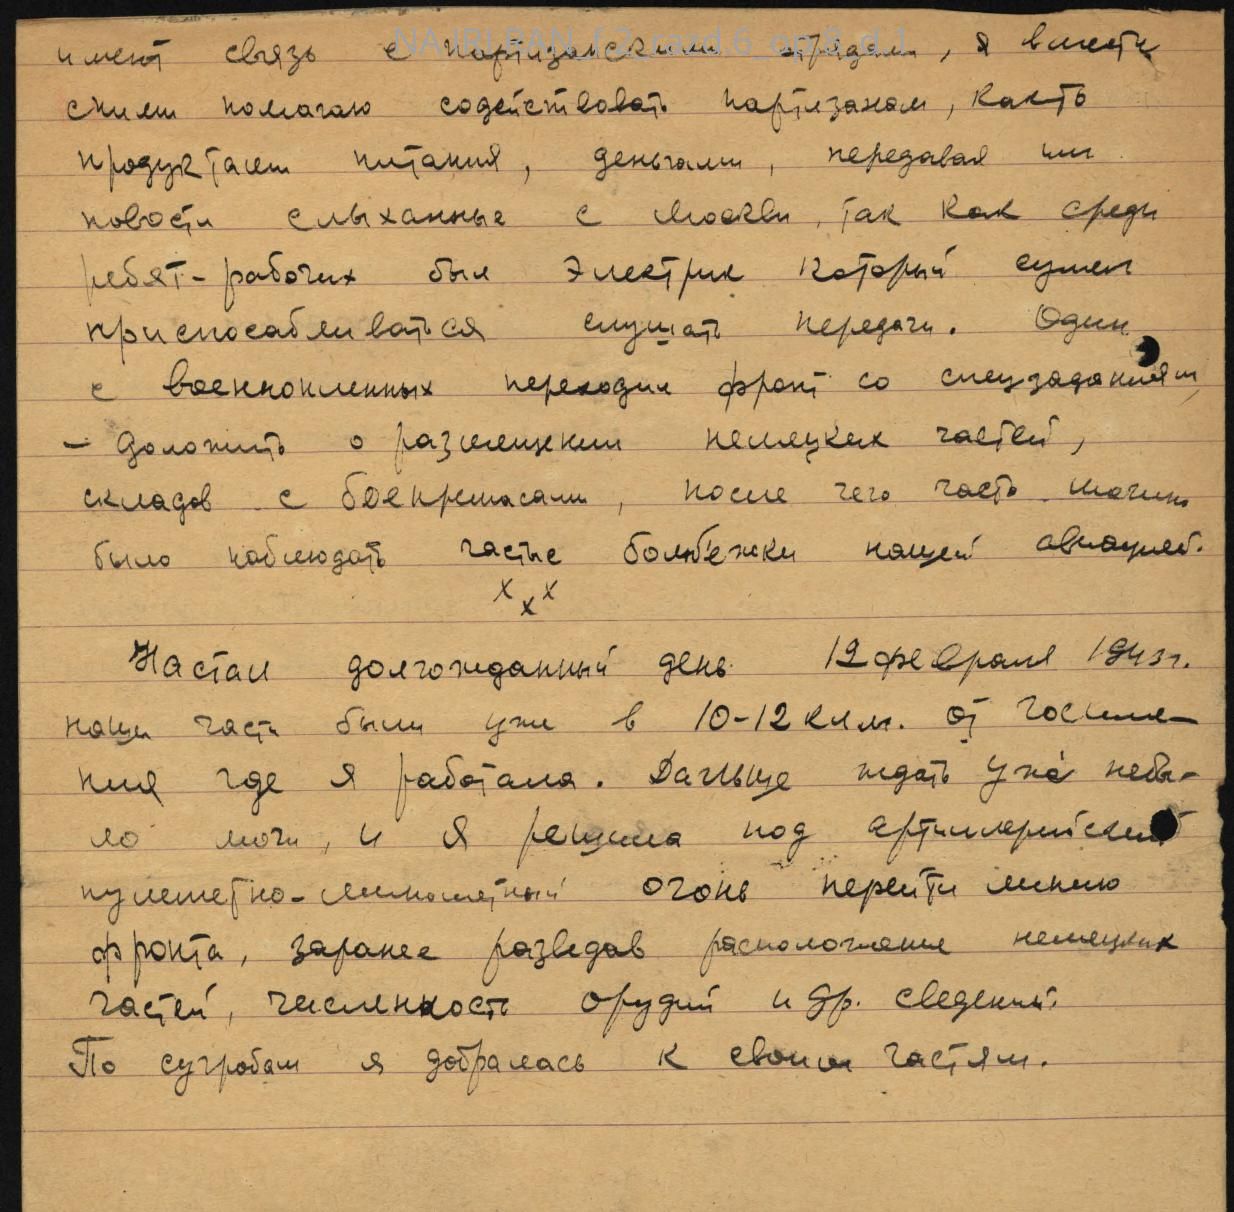 имеют связь с партизанскими отрядами, я вместе
сними помагаю содействовать партизанам, какть
продуктами питания, деньгами, передавая им
новости слыханные с Москвы, так как среди
ребят-рабочих был электрик который сумел
приспосабливаться слушать передачи. Один
с военнопленных переходил фронт со спецзаданиям,
- Доложить о размещении немецких частей,
складов с боеприпасами, после чего часто можно
было наблюдать частые бомбёжки нашей авиацией.
х х х
Настал долгожданный день 12 февраля 1943г.
наши части были уже в 10-12 клм. от госиме-
ния где я работала. Дальше ждать уже небы-
ло мочи, и я решила под артиллерийский
пулеметно-минометный огонь перейти линию
фронта, заранее разведав расположение немецких
частей, численность орудий и др. сведений.
По сугробам я добралась к своим частям.
NA IRI RAN_f.2_razd.6_op.8_d.1